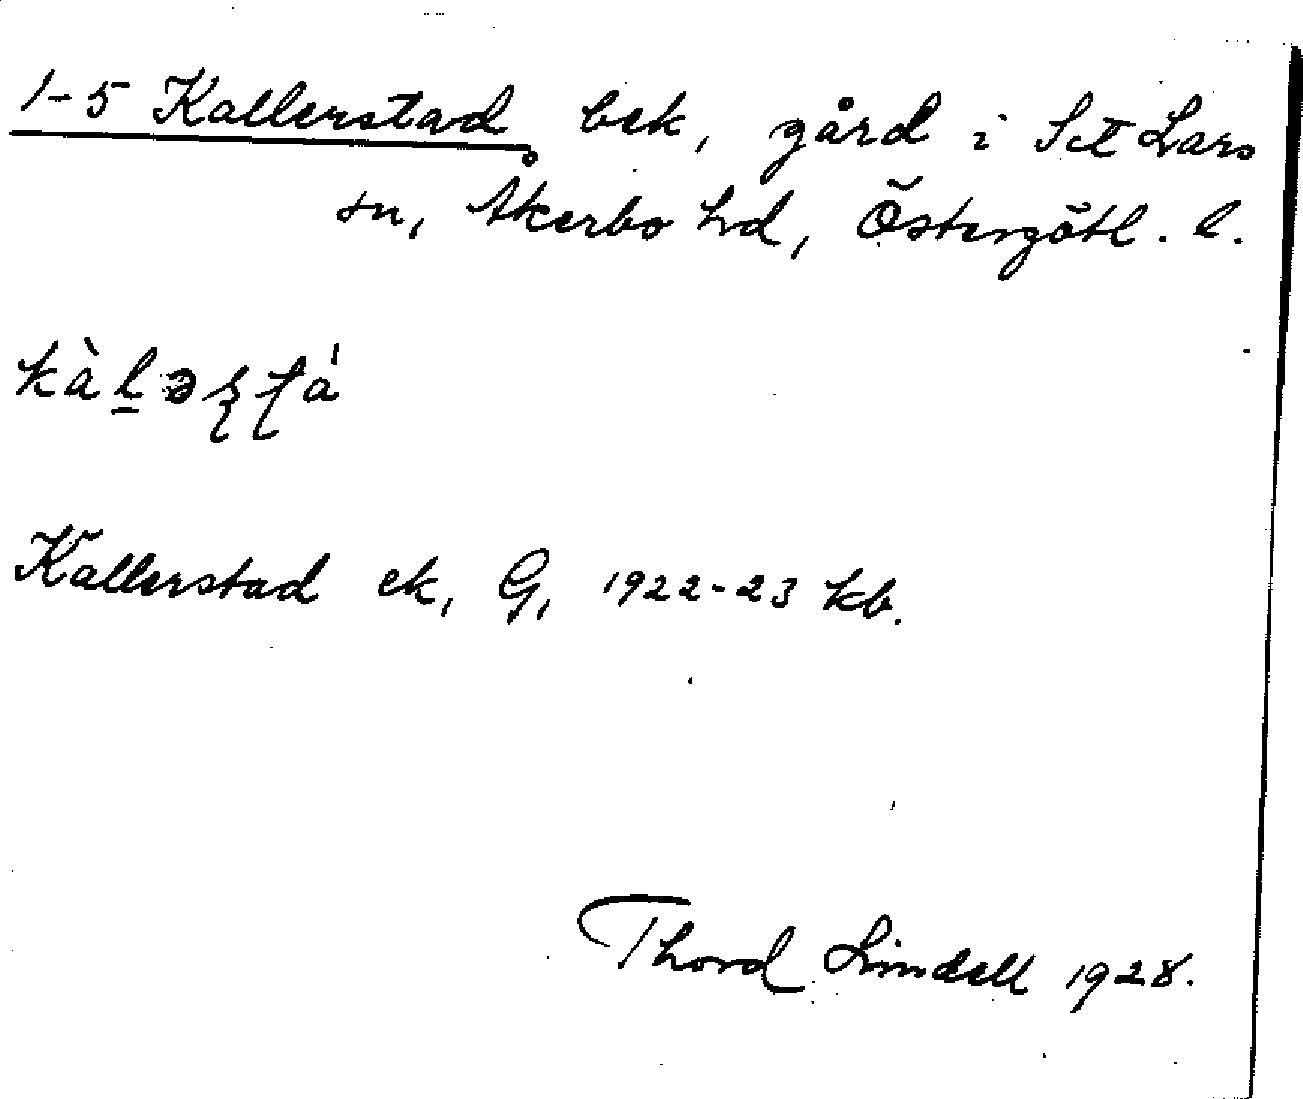 1-5 Kallerstad bek, gård i S:t Lars
sn, Åkerbo hd, Östergötl. l.
kàḻəʂʈá
Kallerstad ek, G, 1922-23 kb.
Thord Lindell 1928.